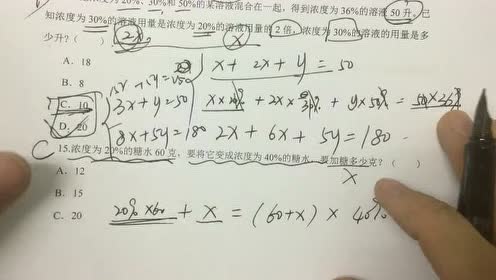 浓度为20%、30%和50%的某溶液混合在一起，得到浓度为36%的溶液50升。已
知浓度为30%的溶液用量是浓度为20%的溶液用量的2倍，浓度为30%的溶液的用量是多
少升？（ ）
2x
x
A．18
B．8
C．10
D．20
x + 2x + y = 50
3x + y = 50
x×20% + 2x×30% + y×50% = 50×36%
8x + 5y = 180
2x + 6x + 5y = 180
C
15.浓度为20%的糖水60克，要将它变成浓度为40%的糖水，要加糖多少克？（ ）
x
A．12
B．15
C．20
20%×60 + x = (60+x) × 40%